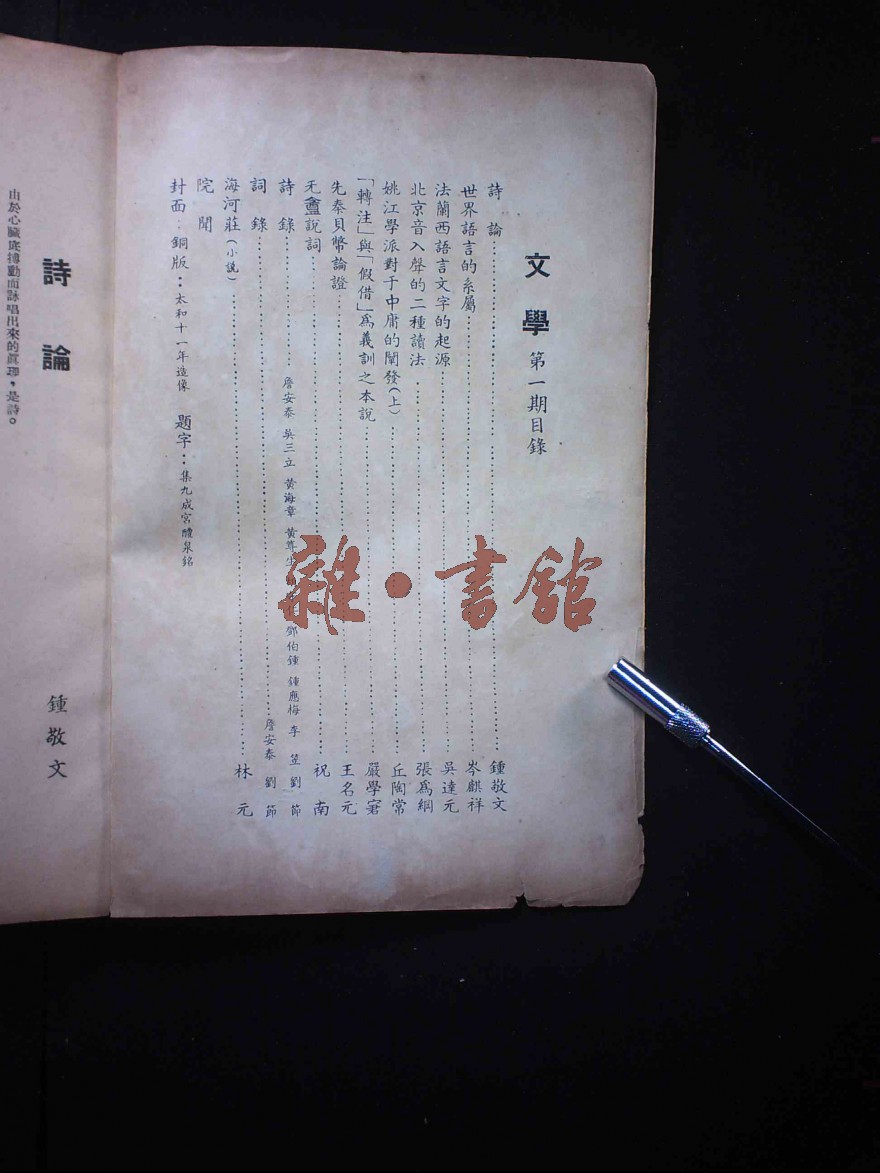 文學 第一期目錄
詩論……鍾敬文
世界語言的系屬……岑麒祥
法蘭西語言文字的起源……吳達元
北京音入聲的二種讀法……張爲綱
姚江學派對于中庸的闡發(上)……丘陶常
「轉注」與「假借」爲義訓之本說……嚴學宭
先秦貝幣論證……王名元
无盦說詞……祝南
詩錄……詹安泰 吳三立 黃海章 黃尊生 鄧伯鍾 鍾應梅 李笠 劉節
詞錄……詹安泰 劉節
海河莊(小說)……林元
院聞
封面:銅版:太和十一年造像 題字:集九成宮醴泉銘
雜·書館
詩論
鍾敬文
由於心臟底搏動而詠唱出來的眞理,是詩。